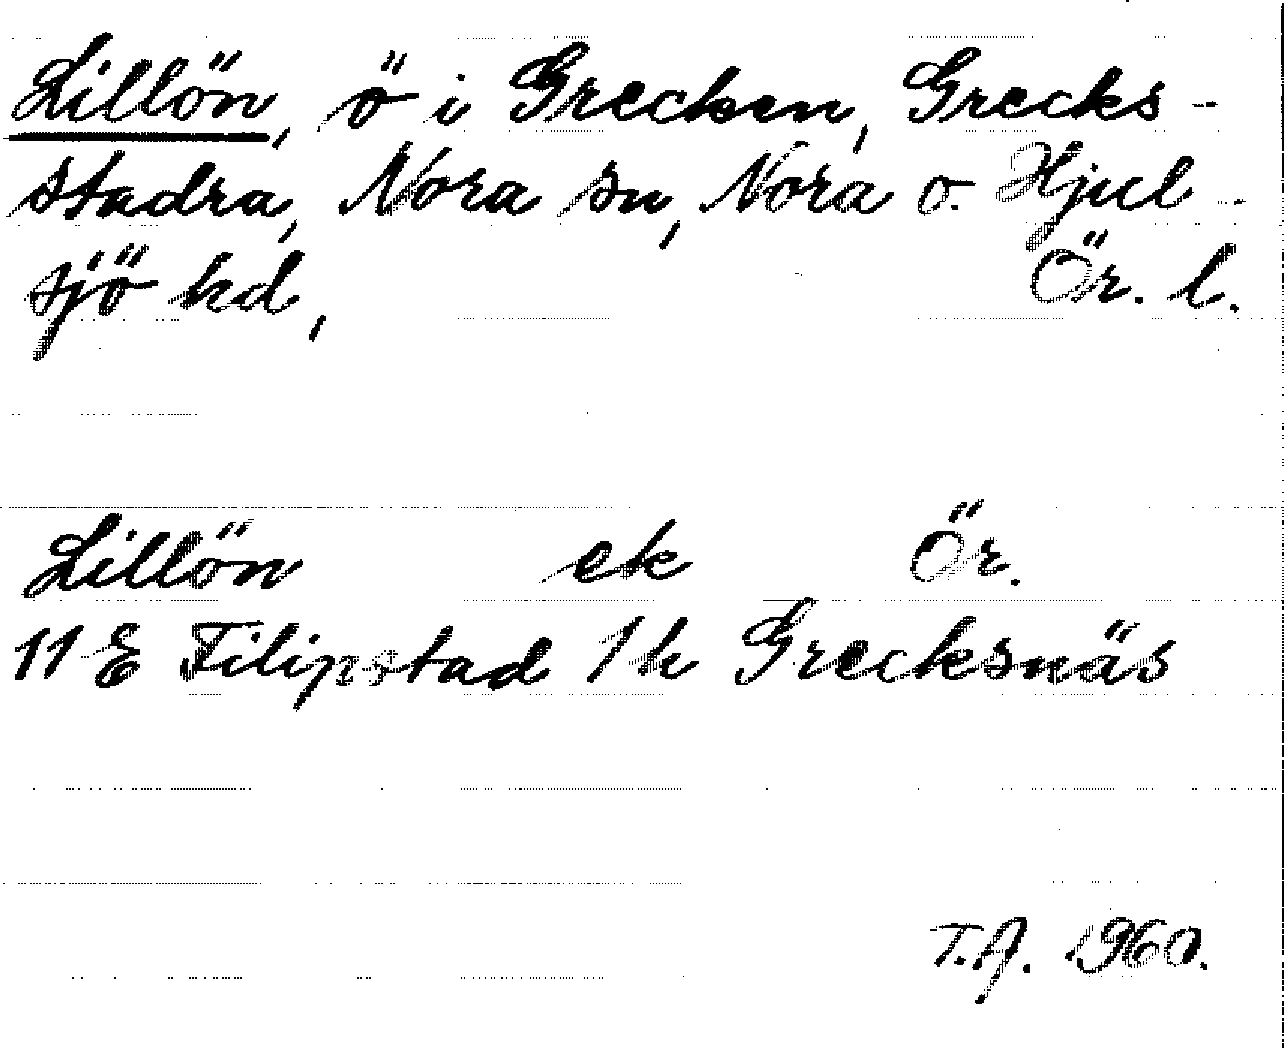 Lillön, ö i Grecken, Grecks-
stadra, Nora sn, Nora o. Hjul-
sjö hd, Ör. l.
Lillön ek Ör.
11 E Filipstad 1 h Grecksnäs
T.A. 1960.